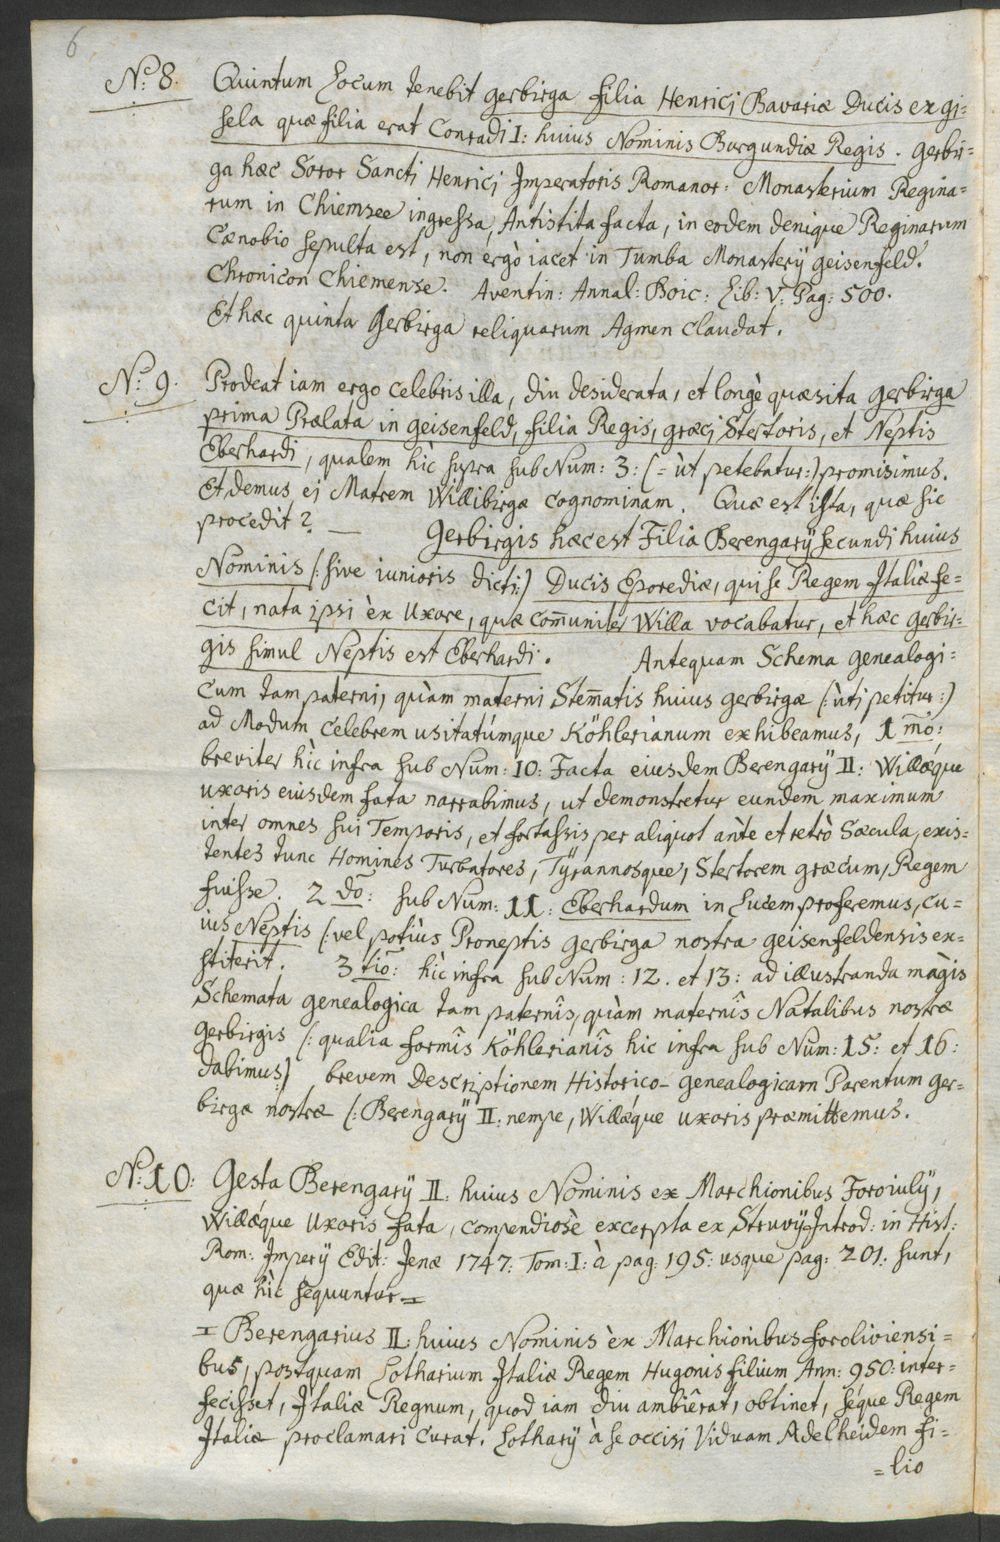 6
N.º 8. Quintum Locum tenebit gerbirga filia Henrici Bavariæ Ducis ex gi=
sela quæ filia erat Conradi I: huius Nominis Burgundiæ Regis. gerbir=
ga hæc Soror Sancti Henrici Imperatoris Romanor: Monasterium Regina=
rum in Chiemsee ingressa, Antistita facta, in eodem denique Reginarum
Cænobio sepulta est, non ergò iacet in Tumba Monasterÿ geisenfeld.
Chronicon Chiemense. Aventin: Annal: Boic: Lib: V: Pag: 500.
Et hæc quinta Gerbirga reliquarum Agmen claudat.
N.º 9. Prodeat iam ergo celebris illa, diu desiderata, et longè quæsita gerbirga
prima Prælata in geisenfeld, filia Regis, græci Stertoris, et Neptis
Eberhardi, qualem hìc supra sub Num: 3: (= ùt petebatur:) promisimus.
Et demus ei Matrem Willibirgæ cognominam. Quæ est ista, quæ sic
procedit? — Gerbirgis hæc est Filia Berengarÿ secundi huius
Nominis (: sive iunioris dicti:) Ducis Eporediæ, qui se Regem Italiæ fe=
cit, nata ipsi èx Uxore, quæ com̄uniter Willa vocabatur, et hæc gerbir=
gis simul Neptis est Eberhardi. Antequam Schema genealogi=
cum tam paterni, quàm materni Stem̄atis huius gerbirgæ (: ùti petitur:)
ad Modum celebrem usitatúmque Köhleriànum exhibeamus, 1 mō:
breviter hìc infra sub Num: 10: Facta eiusdem Berengarÿ II: Willǽque
uxoris eiusdem fata narrabimus, ut demonstretur eundem maximum
inter omnes sui Temporis, et fortassis per aliquot ànte et retrò Sæcula, exis=
tentes tunc Homines Turbatores, Tÿrannosque, Stertorem græcum, Regem
fuisse. 2 dō: sub Num: 11: Eberhardum in Lucem proferemus, cu=
ius Neptis (: vel potiùs Proneptis gerbirga nostra geisenfeldensis ex=
stiterit. 3 tiō: hìc infra sub Num: 12. et 13: ad illustranda màgis
Schemata genealogica tam paternîs, quàm maternîs Natalibus nostræ
gerbirgis (: qualia formîs Köhlerianîs hic infra sub Num: 15: et 16:
dabimus:) brevem Descriptionem Historico-genealogicam Parentum ger=
birgæ nostræ (: Berengarÿ II: nempe, Willǽque uxoris præmittemus.
N.º 10: Gesta Berengarÿ II: huius Nominis ex Marchionibus Foroiulÿ,
Willǽque Uxoris fata, compendiosè excerpta ex Struvÿ Introd: in Hist:
Rom: Imperÿ Edit: Jenæ 1747: Tom: I: à pag: 195: usque pag: 201: sunt,
quæ hìc sequuntur =
= Berengarius II: huius Nominis èx Marchionibus foroliviensi=
bus, postquam Lotharium Italiæ Regem Hugonis filium Ann: 950: inter=
fecisset, Italiæ Regnum, quod iam diu ambîerat, obtinet, séque Regem
Italiæ proclamari curat. Lotharÿ à se occisi Viduam Adelheidem fi=
=lio